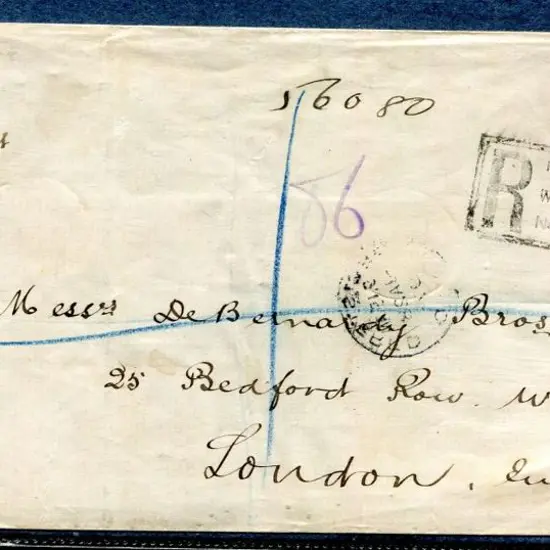 56080
56
R
W
N
Messrs De Bernardy Bros
25 Bedford Row. W
London.